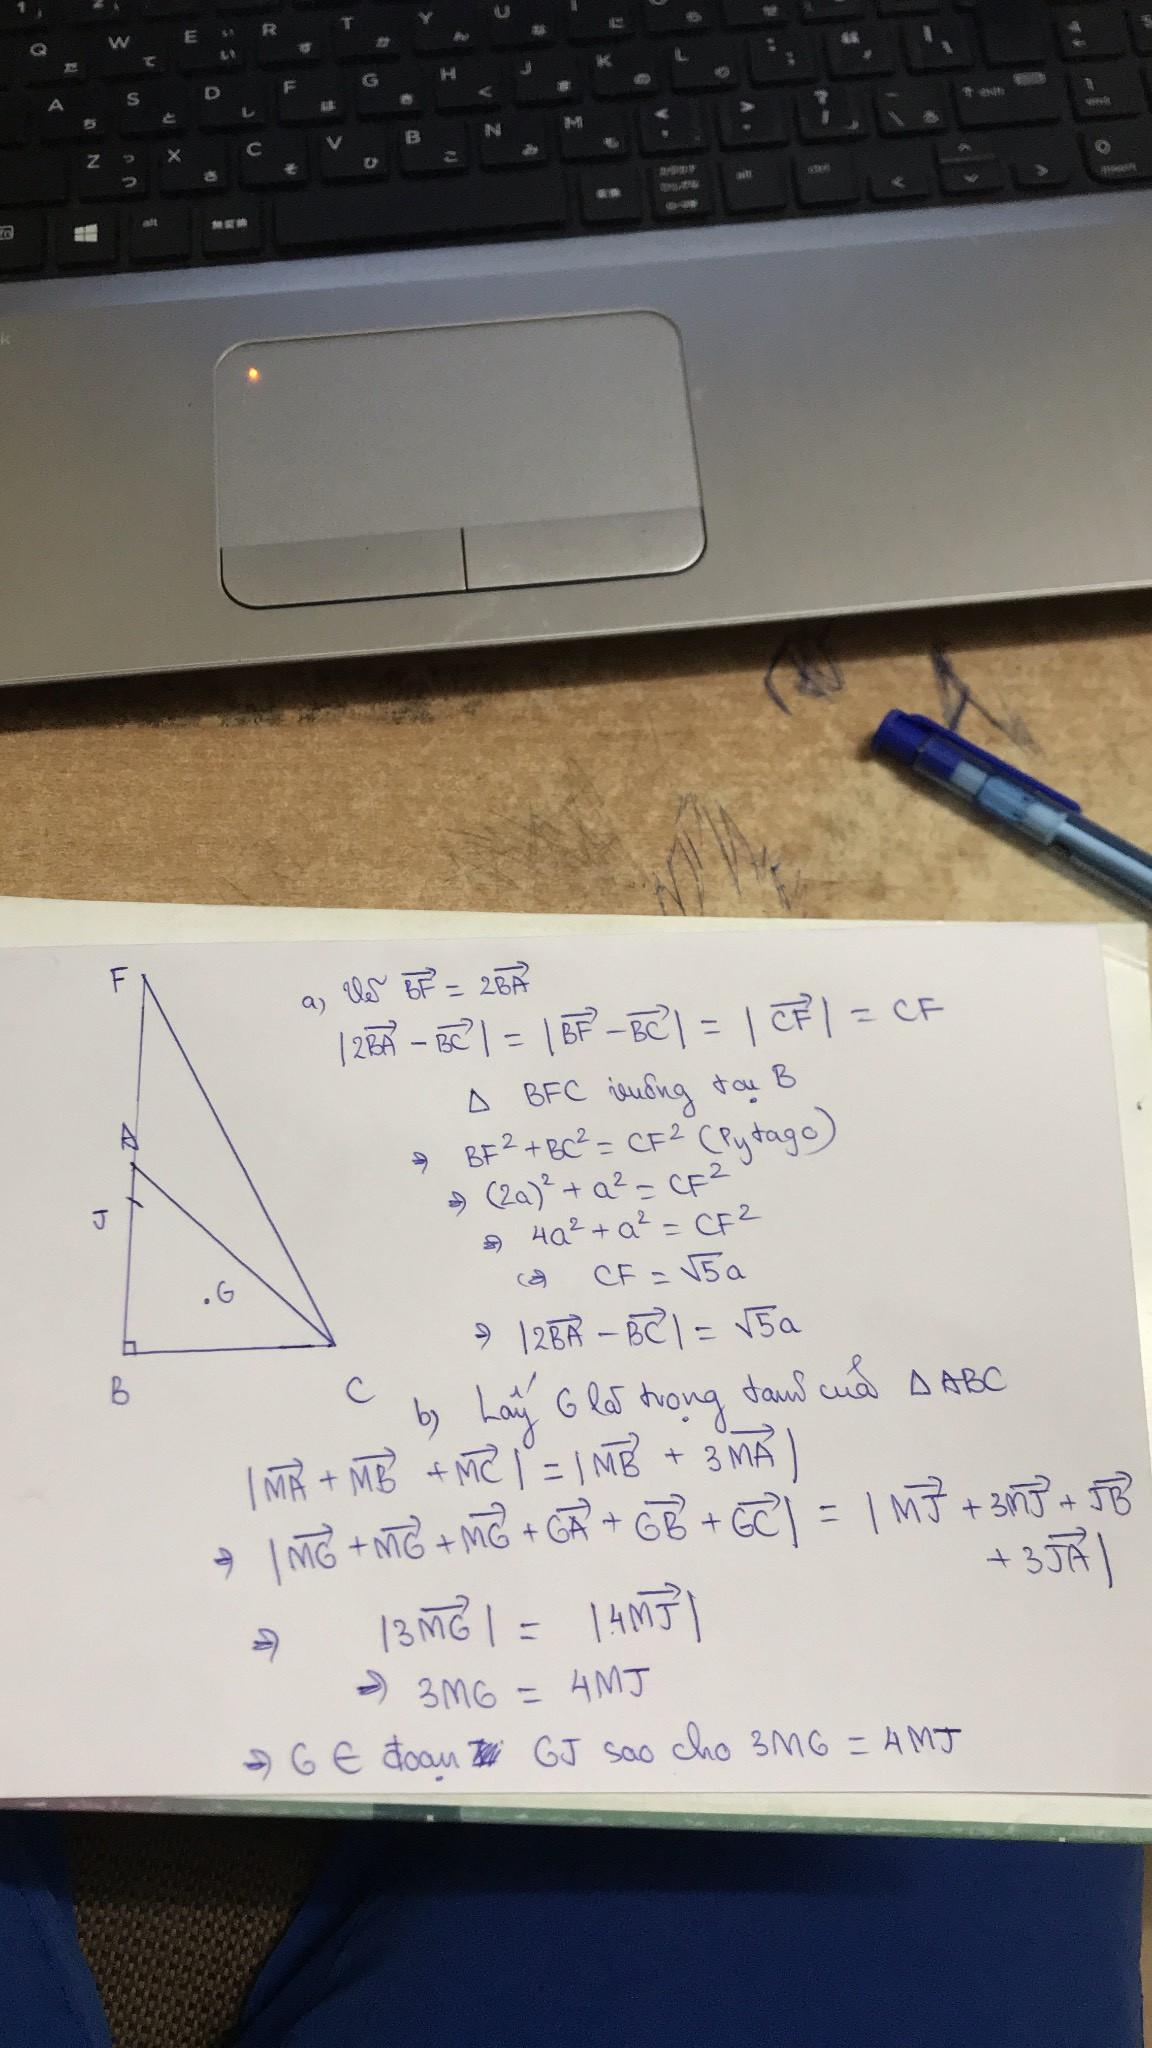 Q W E R T Y U I
A S D F G H J K L
Z X C V B N M
alt 無変換 alt ctrl
k
F
A
J
.G
B
C
a, Vẽ BF = 2BA
|2BA - BC| = |BF - BC| = |CF| = CF
Δ BFC vuông tại B
⇒ BF² + BC² = CF² (Pytago)
⇒ (2a)² + a² = CF²
⇒ 4a² + a² = CF²
⇔ CF = √5a
⇒ |2BA - BC| = √5a
b, Lấy G là trọng tâm của Δ ABC
|MA + MB + MC| = |MB + 3MA|
⇒ |MG + MG + MG + GA + GB + GC| = |MJ + 3MJ + JB
+ 3JA|
⇒ |3MG| = |4MJ|
⇒ 3MG = 4MJ
⇒ G ∈ đoạn GJ sao cho 3MG = 4MJ